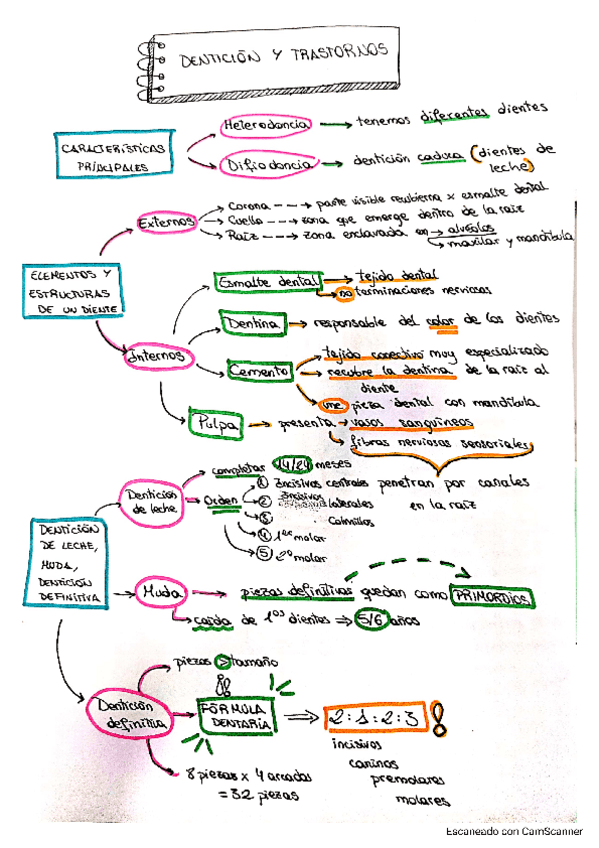 DENTICIÓN Y TRASTORNOS
CARACTERÍSTICAS
PRINCIPALES
Heterodoncia → tenemos diferentes dientes
Difiodoncia → dentición caduca (dientes de
leche)
ELEMENTOS Y
ESTRUCTURAS
DE UN DIENTE
Externos
Corona --→ parte visible recubierna x esmalte dental
Cuello --→ zona que emerge dentro de la raíz
Raíz --→ zona enclavada en → alvéolos
→ maxilar y mandíbula
Internos
Esmalte dental → tejido dental
→ no terminaciones nerviosas
Dentina → responsable del color de los dientes
Cemento → tejido conectivo muy especializado
→ recubre la dentina de la raíz al
diente
→ une pieza dental con mandíbula
Pulpa → presenta → vasos sanguíneos
→ fibras nerviosas sensoriales
penetran por canales
en la raíz
DENTICIÓN
DE LECHE,
MUDA,
DENTICIÓN
DEFINITIVA
Dentición
de leche
completar 14/24 meses
Orden
① Incisivos centrales
② Incisivos laterales
③ Colmillos
④ 1er molar
⑤ 2º molar
Muda → piezas definitivas quedan como PRIMORDIOS
→ caída de 1os dientes ⇒ 5/6 años
Dentición
definitiva
piezas > tamaño
FÓRMULA
DENTARIA
⇒ 2:1:2:3
incisivos
caninos
premolares
molares
8 piezas x 4 arcadas
= 32 piezas
Escaneado con CamScanner